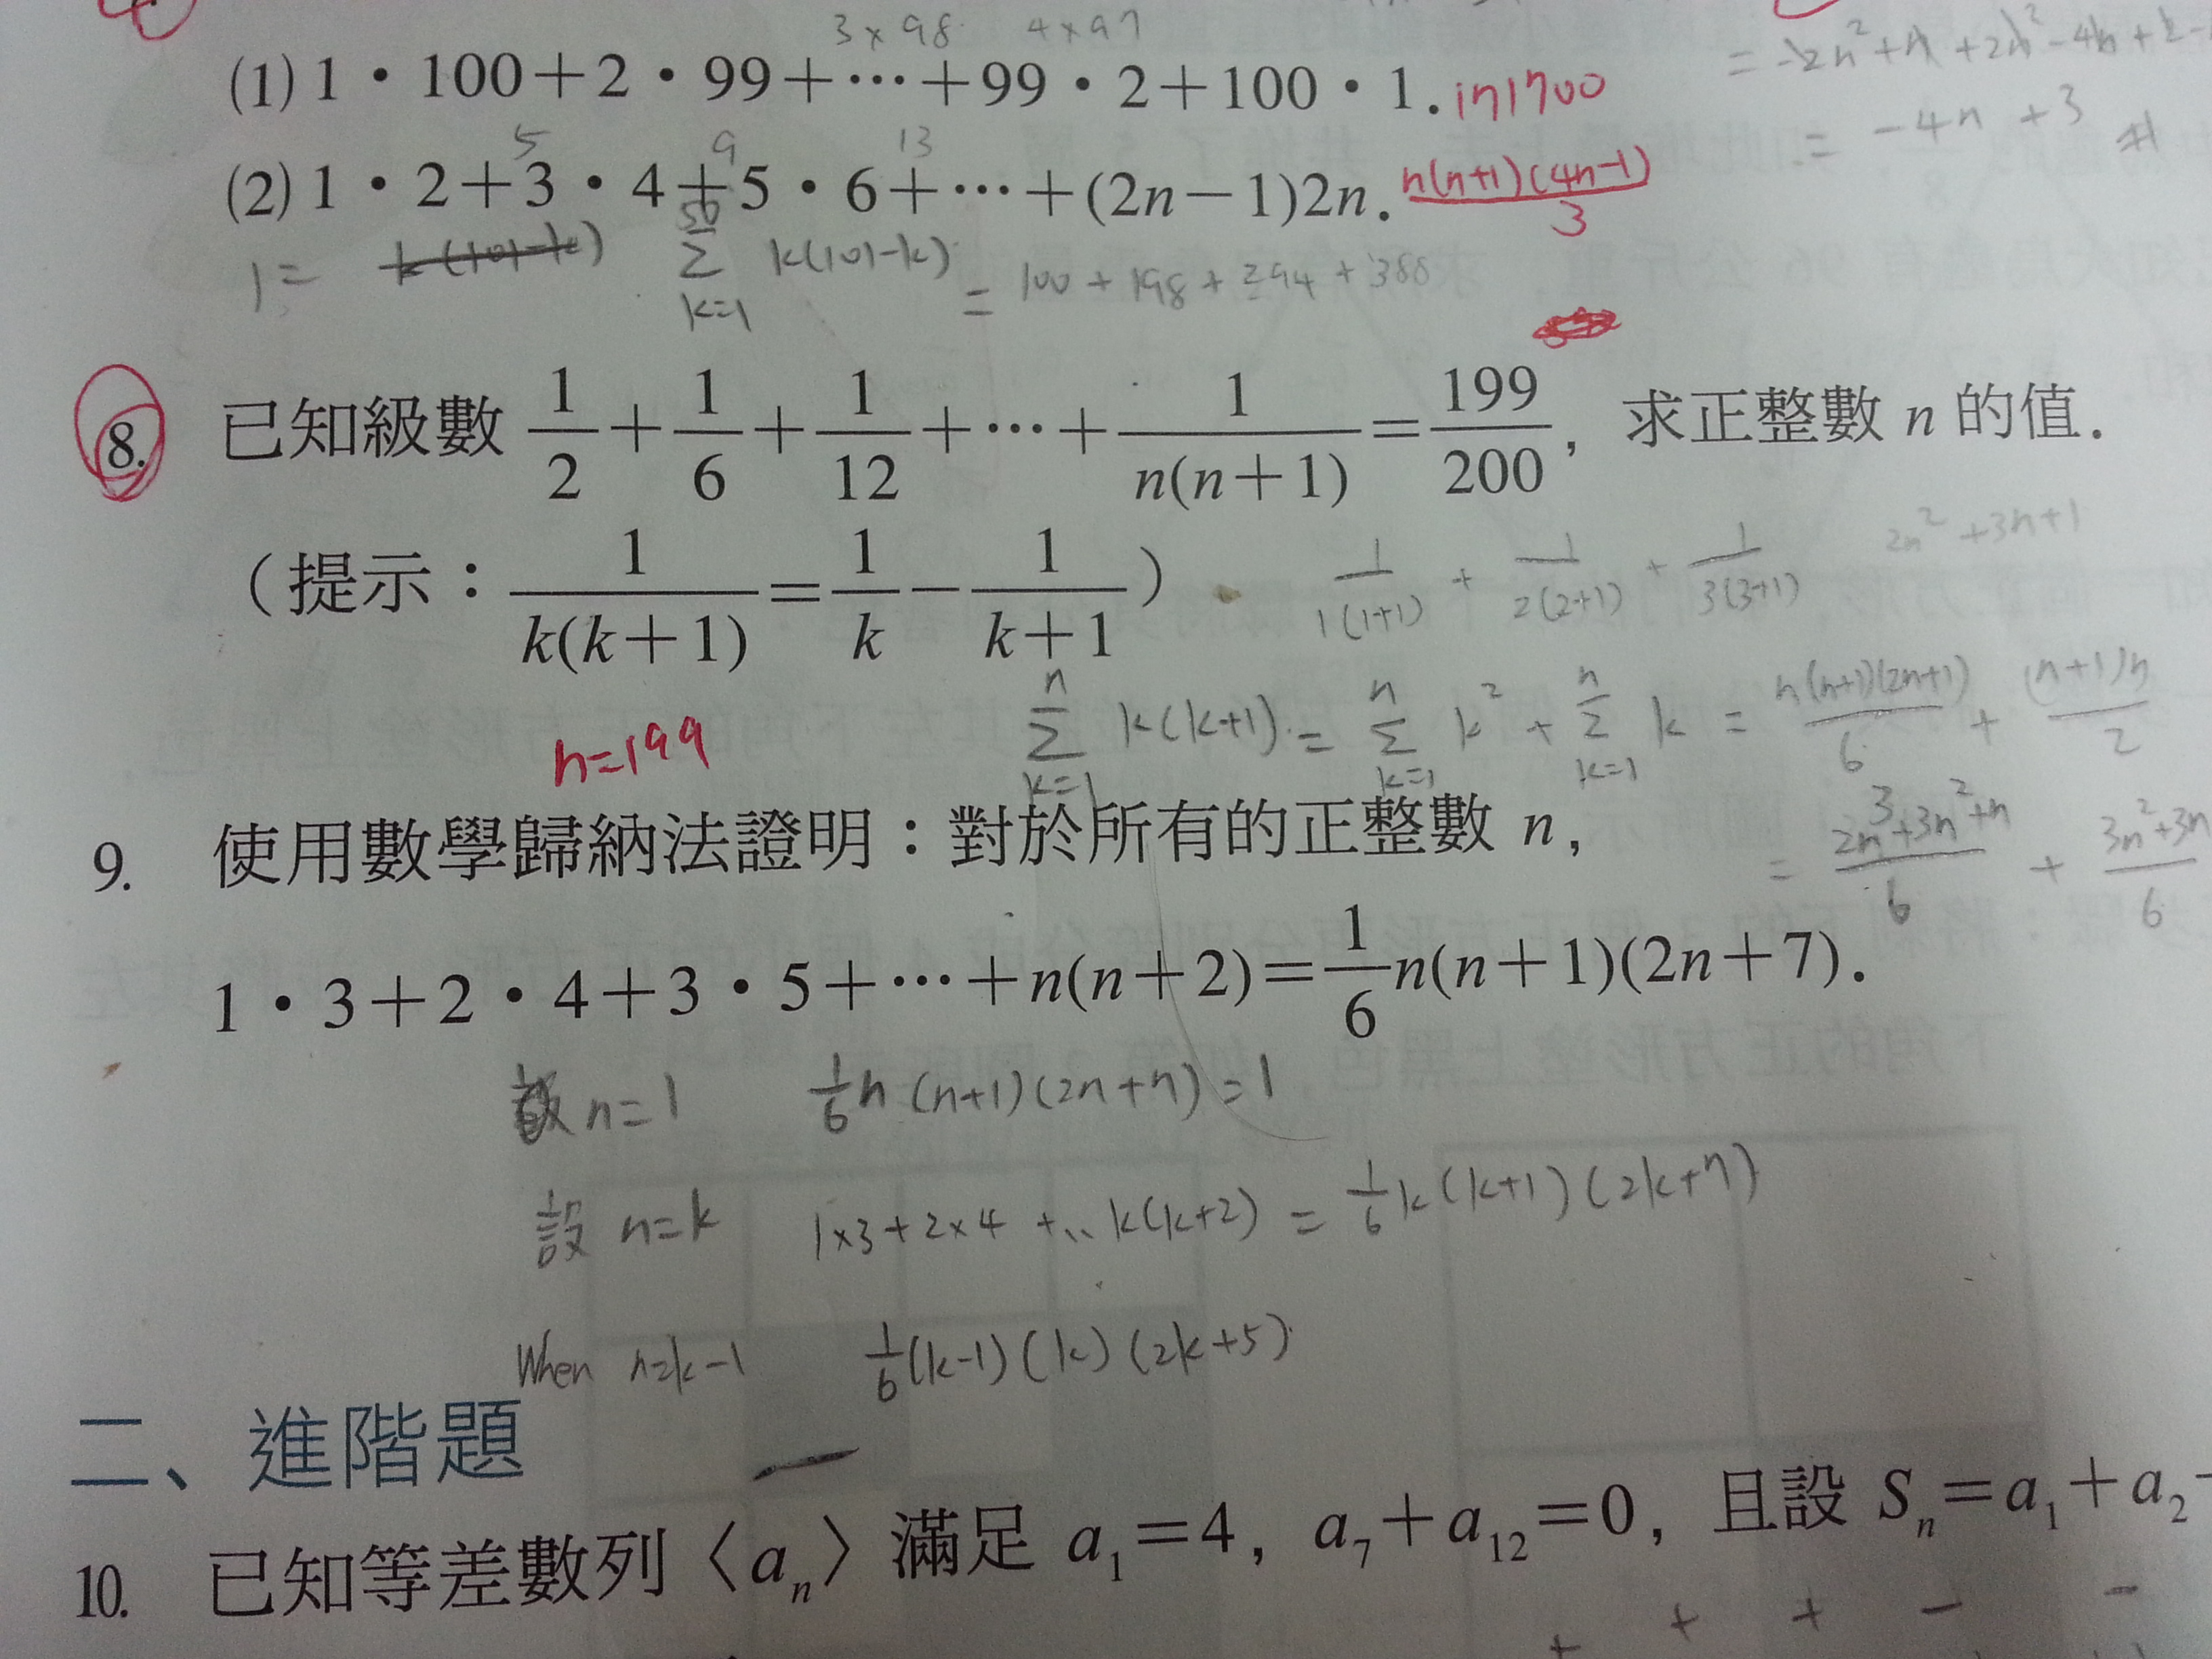 3×98 4×97
= -2n²+n+2n²-4n+2-
(1) 1・100+2・99+⋯+99・2+100・1. 171700
= -4n+3 #
5 9 13
(2) 1・2+3・4+5・6+⋯+(2n-1)2n. n(n+1)(4n-1)/3
1= k(101-k) ∑_{k=1}^{50} k(101-k) = 100+198+294+388
8. 已知級數 1/2+1/6+1/12+⋯+1/n(n+1)=199/200, 求正整數 n 的值.
(提示:1/k(k+1)=1/k-1/k+1) 1/1(1+1) + 1/2(2+1) + 1/3(3+1) 2n²+3n+1
n=199 ∑_{k=1}^{n} k(k+1) = ∑_{k=1}^{n} k² + ∑_{k=1}^{n} k = n(n+1)(2n+1)/6 + (n+1)n/2
9. 使用數學歸納法證明:對於所有的正整數 n,
= 2n³+3n²+n/6 + 3n²+3n/6
1・3+2・4+3・5+⋯+n(n+2)=1/6n(n+1)(2n+7).
設 n=1 1/6n(n+1)(2n+7)=1
設 n=k 1×3+2×4+..k(k+2) = 1/6k(k+1)(2k+7)
When n=k-1 1/6(k-1)(k)(2k+5)
二、進階題
10. 已知等差數列〈aₙ〉滿足 a₁=4, a₇+a₁₂=0, 且設 Sₙ=a₁+a₂
+ + + - -